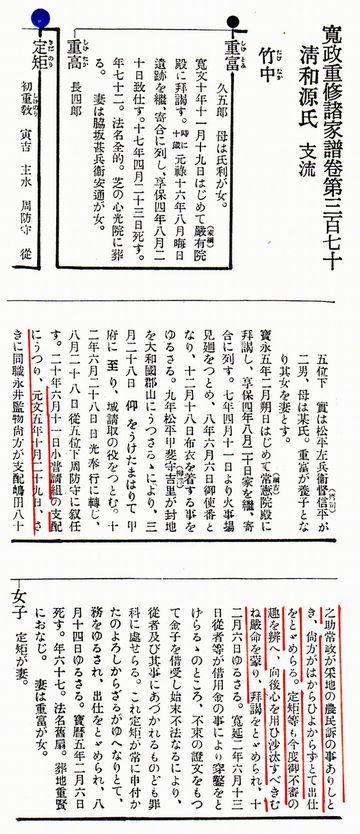 寬政重修諸家譜卷第三百七十
淸和源氏 支流
竹中
たけ なか
重富
しげ とみ
久五郎 母は氏利が女。
寬文十年十一月十九日はじめて嚴有院
(家綱)
殿に拜謁す。時に十歲 元祿十六年八月晦日
遺跡を繼、寄合に列し、享保四年八月二
十日致仕す。十七年四月二十三日死す。
年七十二。法名全的。芝の心光院に葬
る。 妻は脇坂甚兵衞安通が女。
重高
しげ たか
長四郎
定矩
さだ のり
初重敎 寅吉 主水 周防守 從
五位下 實は松平左兵衞督信平が
二男、母は某氏。重富が養子とな
り其女を妻とす。
寶永五年二月朔日はじめて常憲院殿に
(綱吉)
拜謁し、享保四年八月二十日家を繼、寄
合に列す。七年四月十一日より火事場
見廻をつとめ、八年六月六日御使番と
なり、十二月十八日布衣を着する事を
ゆるさる。九年松平甲斐守吉里が封地
を大和國郡山にうつさるゝにより、三
月二十八日 仰をうけたまはりて甲
府に至り、城請取の役をつとむ。十
二年六月二十八日日光奉行に轉じ、
八月二十八日從五位下周防守に敍任
す。二十年六月十一日小普請組の支配
にうつり、元文五年十月二十九日、さ
きに同職永井監物尙方が支配嶋田八十
之助常政が采地の農民訴の事ありしと
き、尙方がはからひよからずとて出仕
をとゞめらる。定矩等も今度御不審の
趣を辨へ、向後心を用ひ沙汰すべきむ
ね嚴命を蒙り、拜謁をとゞめられ、十
二月六日ゆるさる。寬延二年六月十三
日從者等が借用金の事により穿鑿をと
けらるゝのところ、不束の證文をもつ
て金子を借受し始末不法なるにより、
從者及び其事にあづかれるものども罪
科に處せらる。これ定矩が常に申付か
たのよろしからざるがゆへなりとて、
務をゆるされ、出仕をとゞめられ、八
月十四日ゆるさる。寶曆五年二月六日
死す。年六十七。法名舊扇。葬地重賢
におなじ。 妻は重富が女。
女子
定矩が妻。